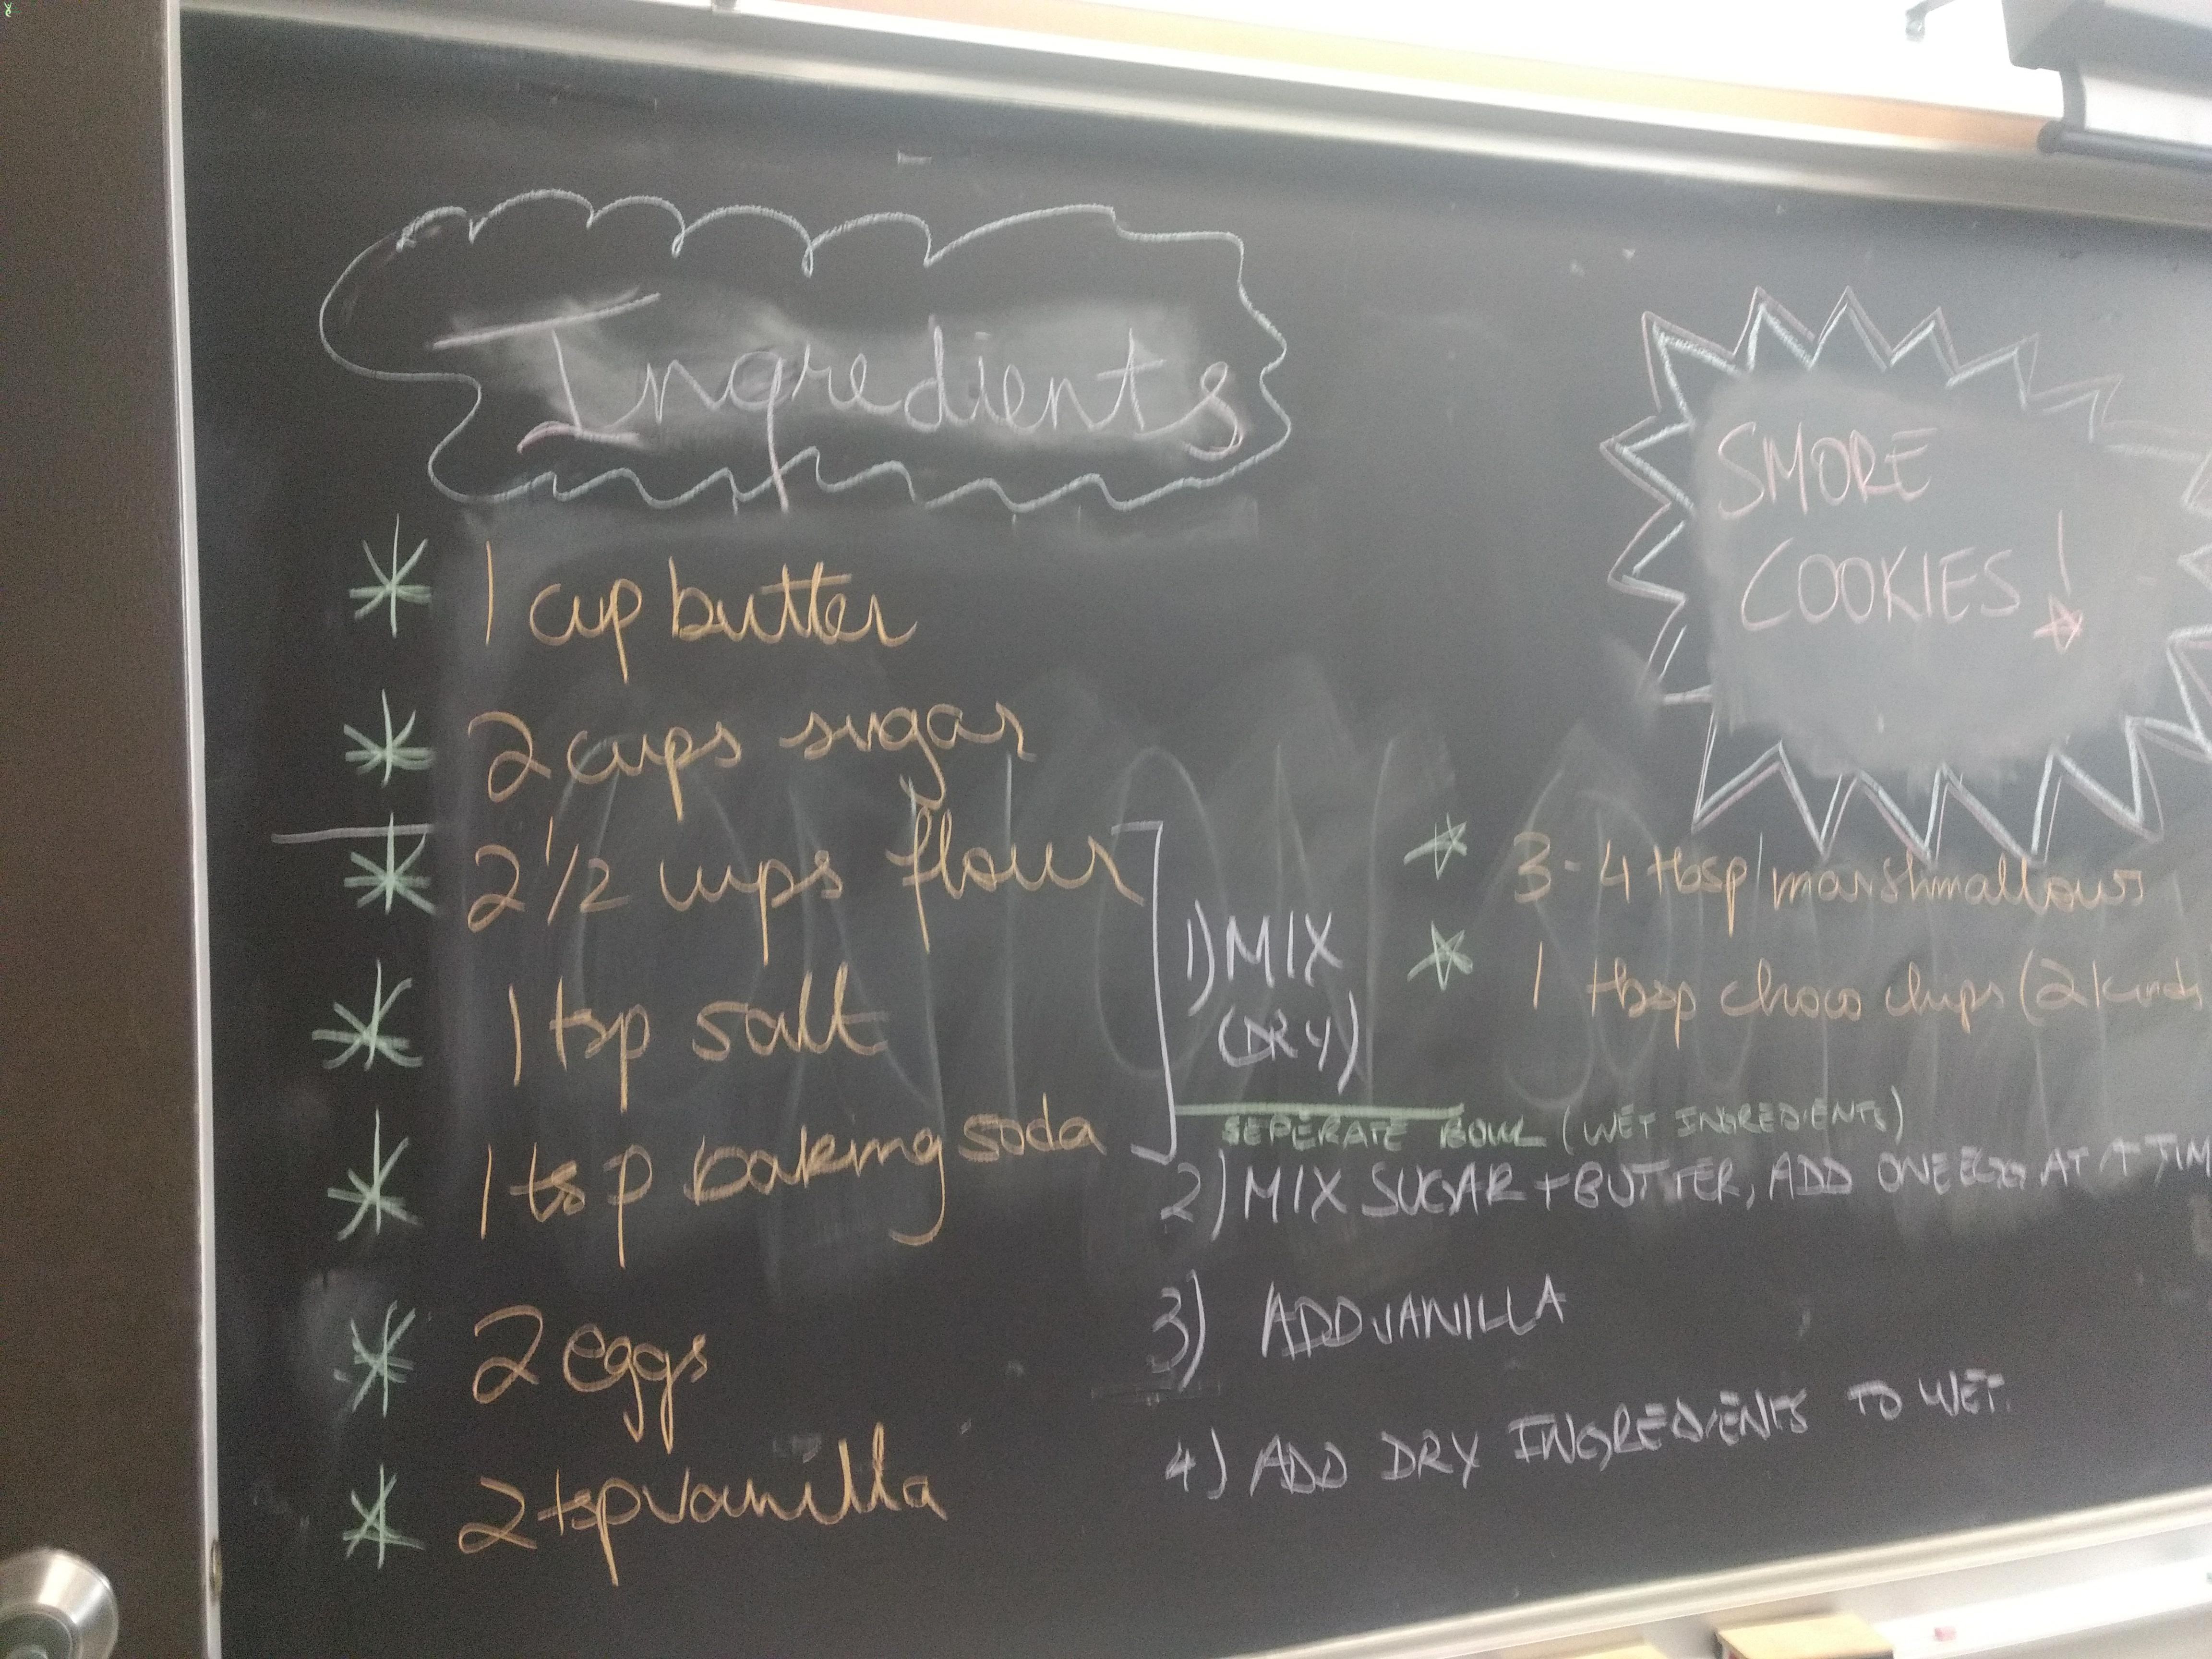 Ingredients
1 cup butter
2 cups sugar
2 1/2 cups flour
1 tsp salt
1 tsp baking soda
2 eggs
2 tsp vanilla
SMORE
COOKIES!
3-4 tbsp marshmallows
1 tbsp choco chips (2 kinds
1) MIX
(DRY)
SEPERATE BOWL (WET INGREDIENTS)
2) MIX SUGAR + BUTTER, ADD ONE EGG AT A TIM
3) ADD VANILLA
4) ADD DRY INGREDIENTS TO WET.